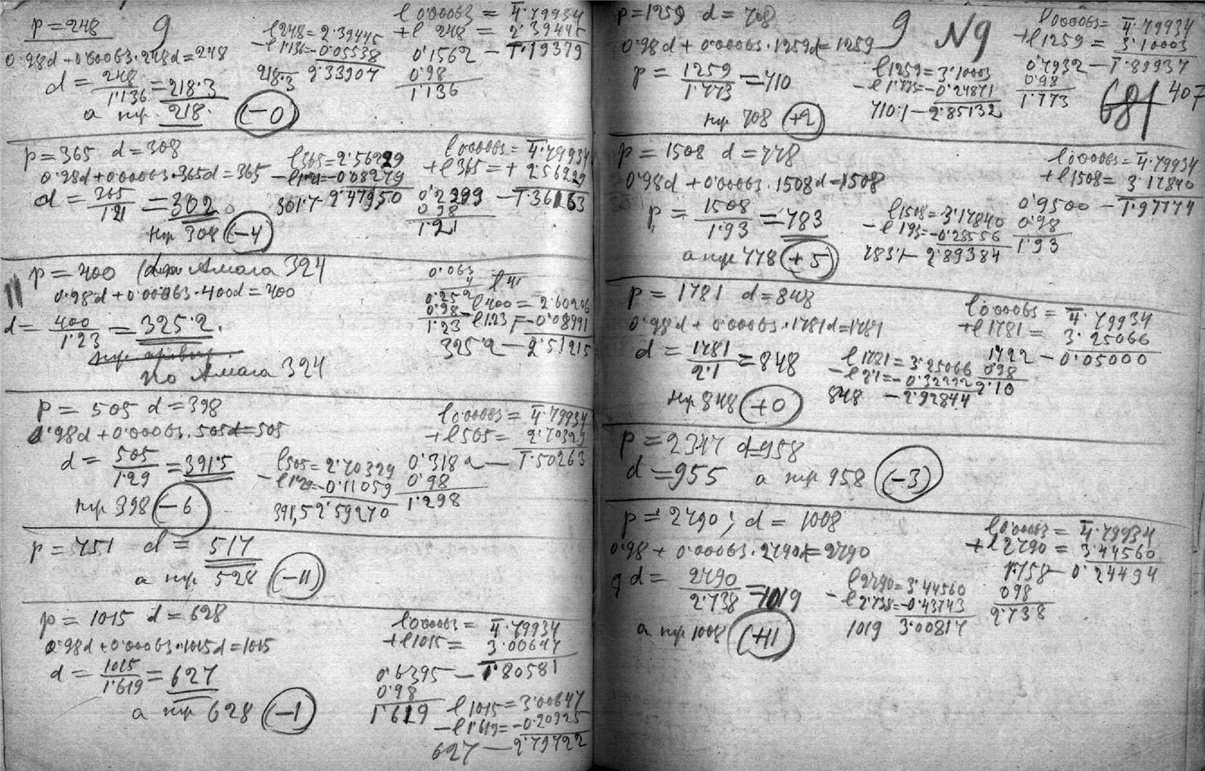 p = 248 9
0.98d + 0.00063·248d = 248
d = 248/1.136 = 218.3
а пр. 218. (-0)
l248 = 2.39445
-l1.136 = -0.05538
218.3 2.33907
l0.00063 = 4̅.79934
+l 248 = 2.39445
0.1562 - 1̅.19379
0.98
1.136
p = 365 d = 308
0.98d + 0.00063·365d = 365
d = 365/1.21 = 302
пр 308 (-4)
l365 = 2.56229
-l1.21 = -0.08279
301.7 - 2.47950
l0.00063 = 4̅.79934
+l365 = + 2.56229
0.2299 - 1̅.36163
0.98
1.21
p = 400 Амага 324
0.98d + 0.00063·400d = 400
d = 400/1.23 = 325.2.
По Амага 324
0.063
4
0.252
0.98
1.23
l400 = 2.60206
-l1.23 = -0.08991
325.2 - 2.51215
p = 505 d = 398
0.98d + 0.00063·505d = 505
d = 505/1.29 = 391.5
пр 398 (-6)
l505 = 2.70329
-l1.29 = -0.11059
391,5 2.59270
l0.00063 = 4̅.79934
+l505 = 2.70329
0.318 - 1̅.50263
0.98
1.298
p = 751 d = 517
а пр 528 (-11)
p = 1015 d = 628
0.98d + 0.00063·1015d = 1015
d = 1015/1.619 = 627
а пр 628 (-1)
l0.00063 = 4̅.79934
+l1015 = 3.00647
0.6395 - 1̅.80581
0.98
1.619
l1015 = 3.00647
-l1.619 = -0.20925
627 - 2.79722
p = 1259 d = 708
0.98d + 0.00063·1259d = 1259 9 N9
p = 1259/1.773 = 710
пр 708 (+2)
l1259 = 3.10003
-l1.773 = -0.24871
710.1 - 2.85132
l0.00063 = 4̅.79934
+l1259 = 3.10003
0.7932 - 1̅.89937
0.98
1.773
681 407
p = 1508 d = 778
0.98d + 0.00063·1508d = 1508
p = 1508/1.93 = 783
а пр 778 (+5)
l1508 = 3.17840
-l1.93 = -0.28556
783.1 - 2.89384
l0.00063 = 4̅.79934
+l1508 = 3.17840
0.9500 - 1̅.97774
0.98
1.93
p = 1781 d = 848
0.98d + 0.00063·1781d = 1781
d = 1781/2.1 = 848
пр 848 (+0)
l1781 = 3.25066
-l2.1 = -0.32222
848 - 2.92844
l0.00063 = 4̅.79934
+l1781 = 3.25066
1.122 - 0.05000
0.98
2.10
p = 2347 d = 958
d = 955 а пр 958 (-3)
p = 2790; d = 1008
0.98 + 0.00063·2790d = 2790
d = 2790/2.738 = 1019
а пр 1008 (+11)
l2790 = 3.44560
-l2.738 = -0.43743
1019 3.00817
l0.00063 = 4̅.79934
+l2790 = 3.44560
1.758 - 0.24494
0.98
2.738